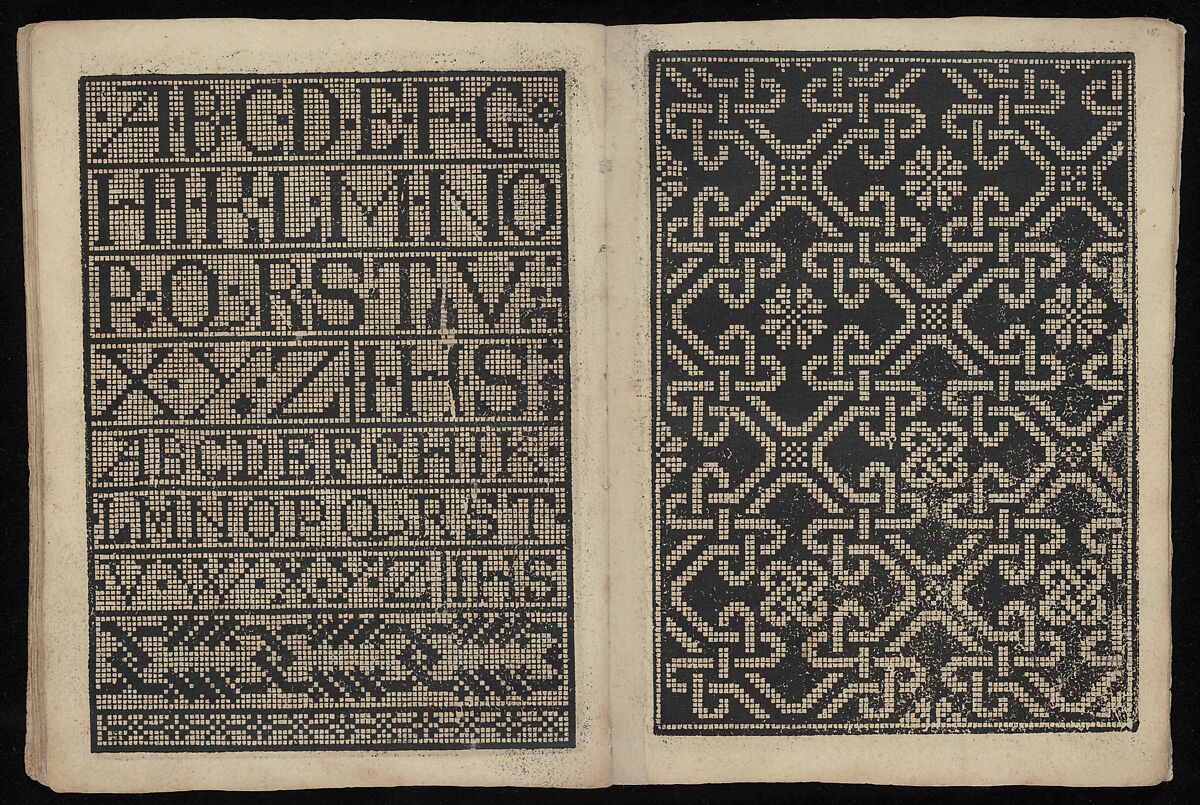 A·B·C·D·E·F·G
H·I·K·L·M·N·O
P·Q·R·S·T·V·
X·Y·Z I·H·S·
A·B·C·D·E·F·G·H·I·K·
L·M·N·O·P·Q·R·S·T·
V·W·X·Y·Z I·H·S